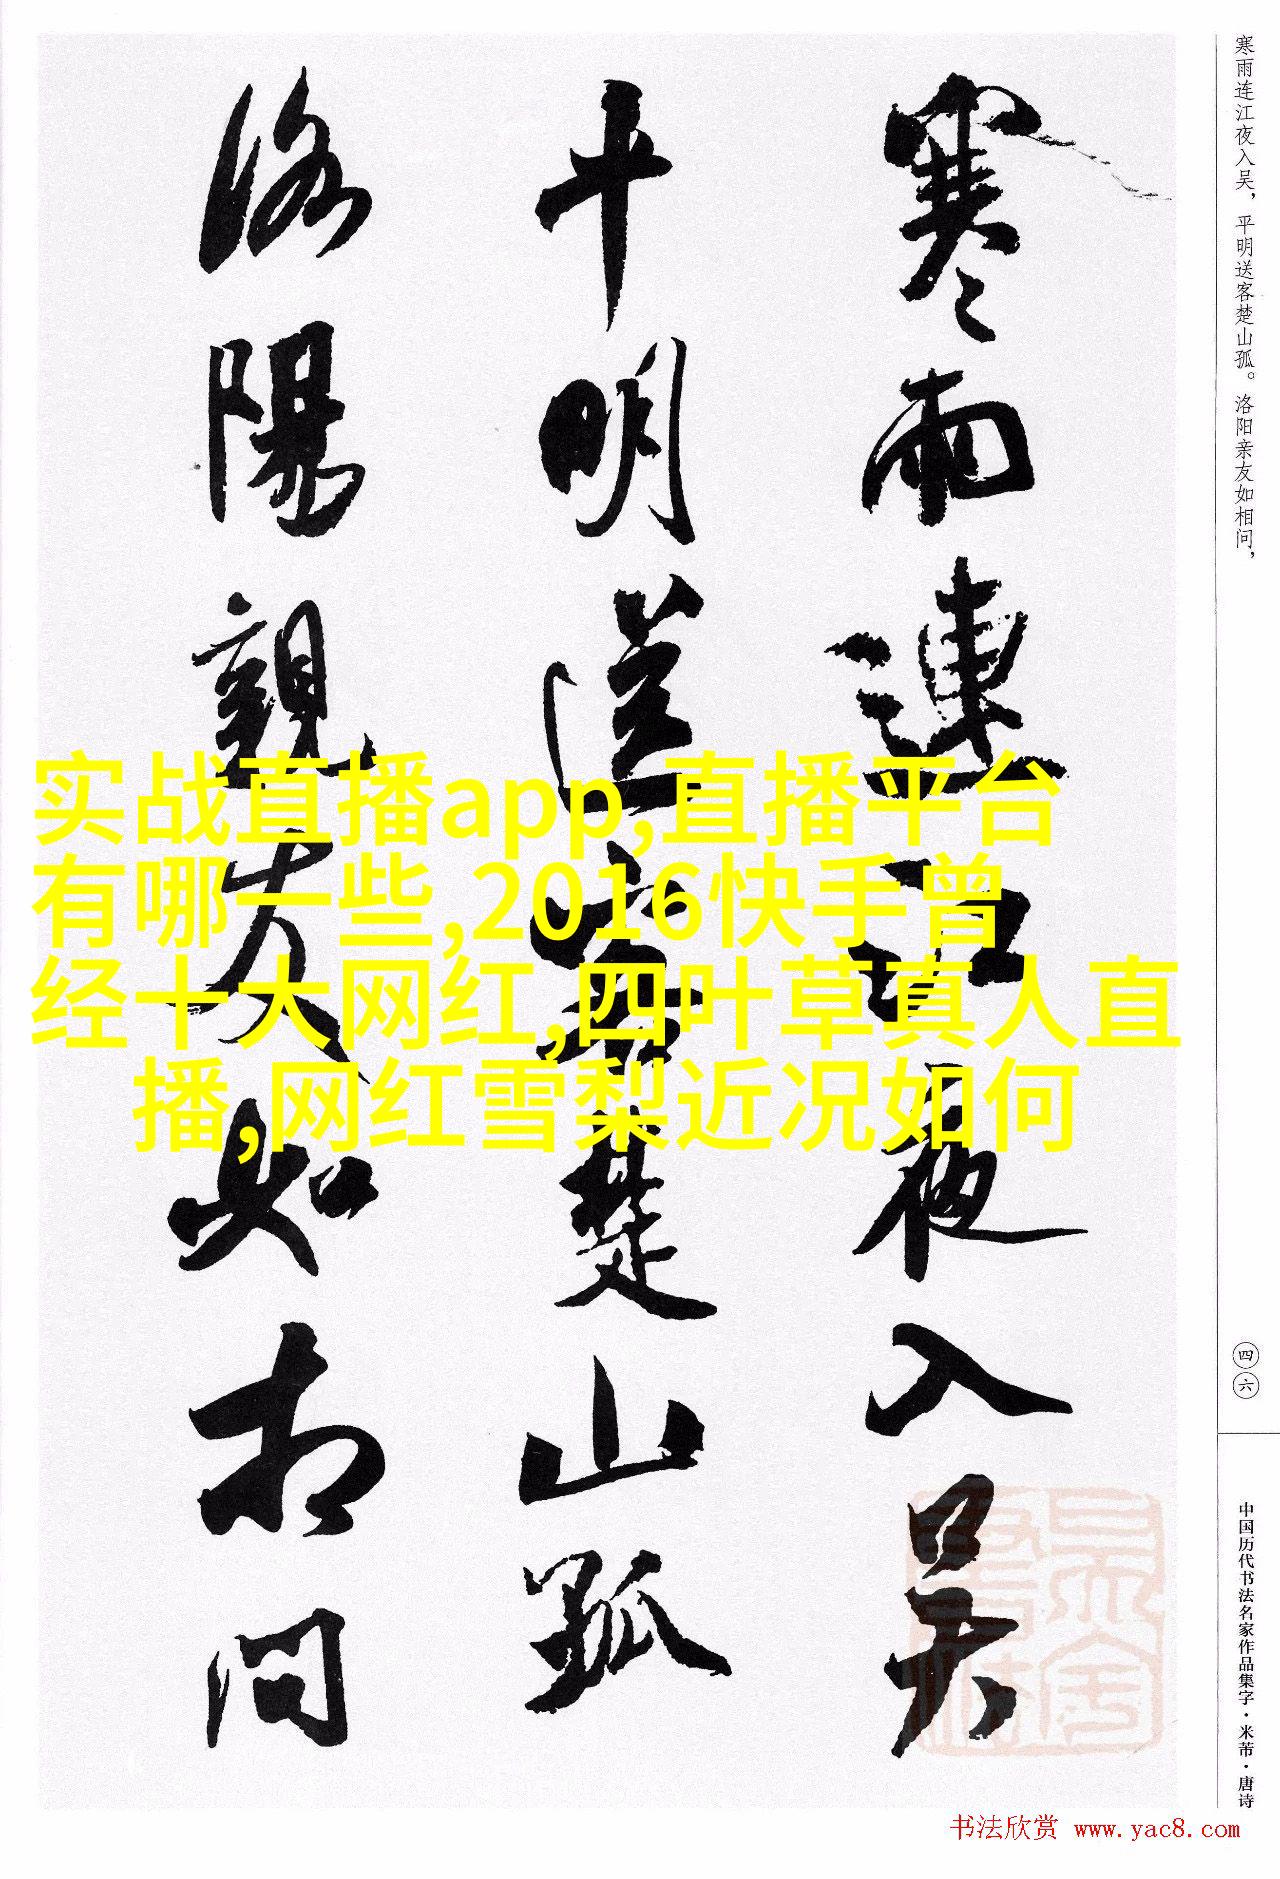 寒雨连江夜入吴，平明送客楚山孤。洛阳亲友如相问，
四六
中国历代书法名家作品集字·米芾·唐诗
寒雨連江夜入吴
平明送客楚山孤
洛陽親友如相問
实战直播app,直播平台
有哪一些,2016快手曾
经十大网红,四叶草真人直
播,网红雪梨近况如何
书法欣赏 www.yac8.com